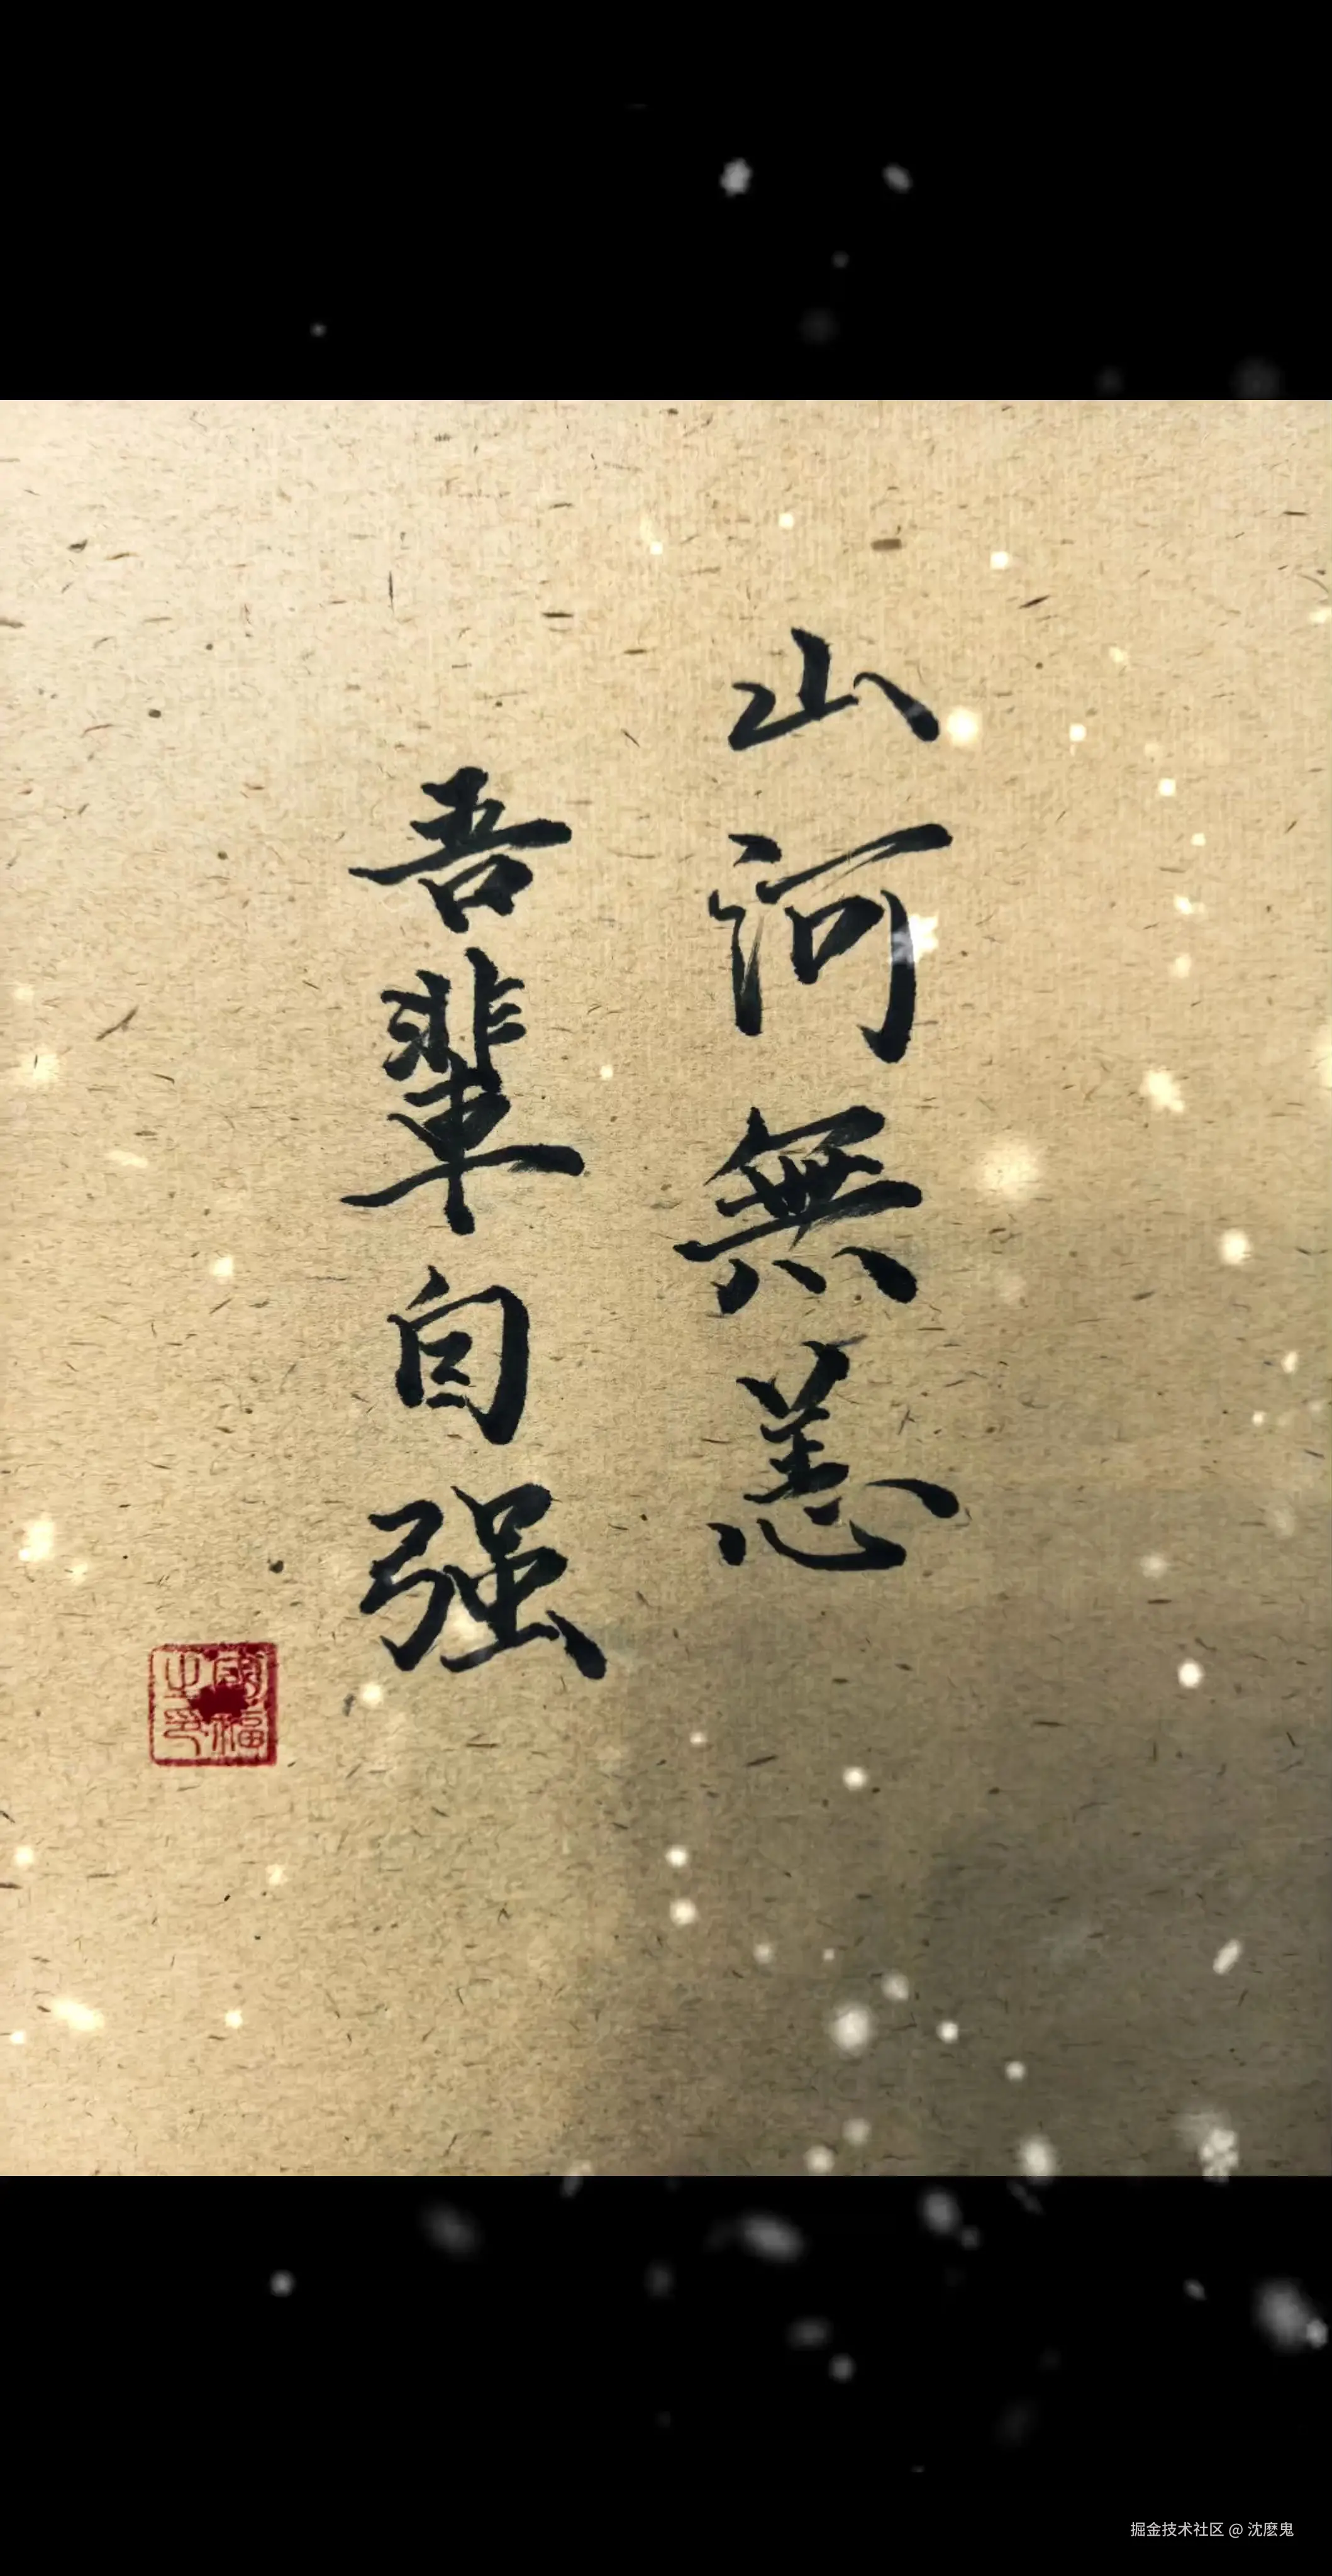 山河無恙
吾輩自强
掘金技术社区 @ 沈麽鬼